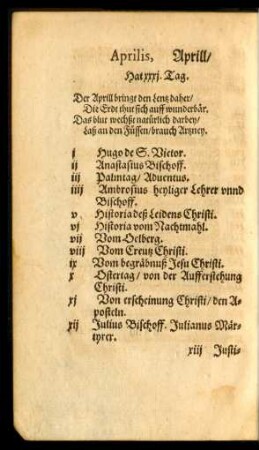 Aprilis, Aprill/
Hat xxxj. Tag.
Der Aprill bringt den Lentz daher/
Die Erdt thut sich auff wunderbär.
Das blut wechßt natürlich darbey/
Laß an den Füssen/ brauch Artzney.
j Hugo de S. Victor.
ij Anastasius Bischoff.
iij Palmtag/ Aduentus.
iiij Ambrosius heyliger Lehrer vnnd
Bischoff.
v Historia deß Leidens Christi.
vj Historia vom Nachtmahl.
vij Vom Oelberg.
viij Vom Creutz Christi.
ix Vom begräbnuß Jesu Christi.
x Ostertag/ von der Aufferstehung
Christi.
xj Von erscheinung Christi/ den A-
posteln.
xij Julius Bischoff. Julianus Mär-
tyrer.
xiij Justi-